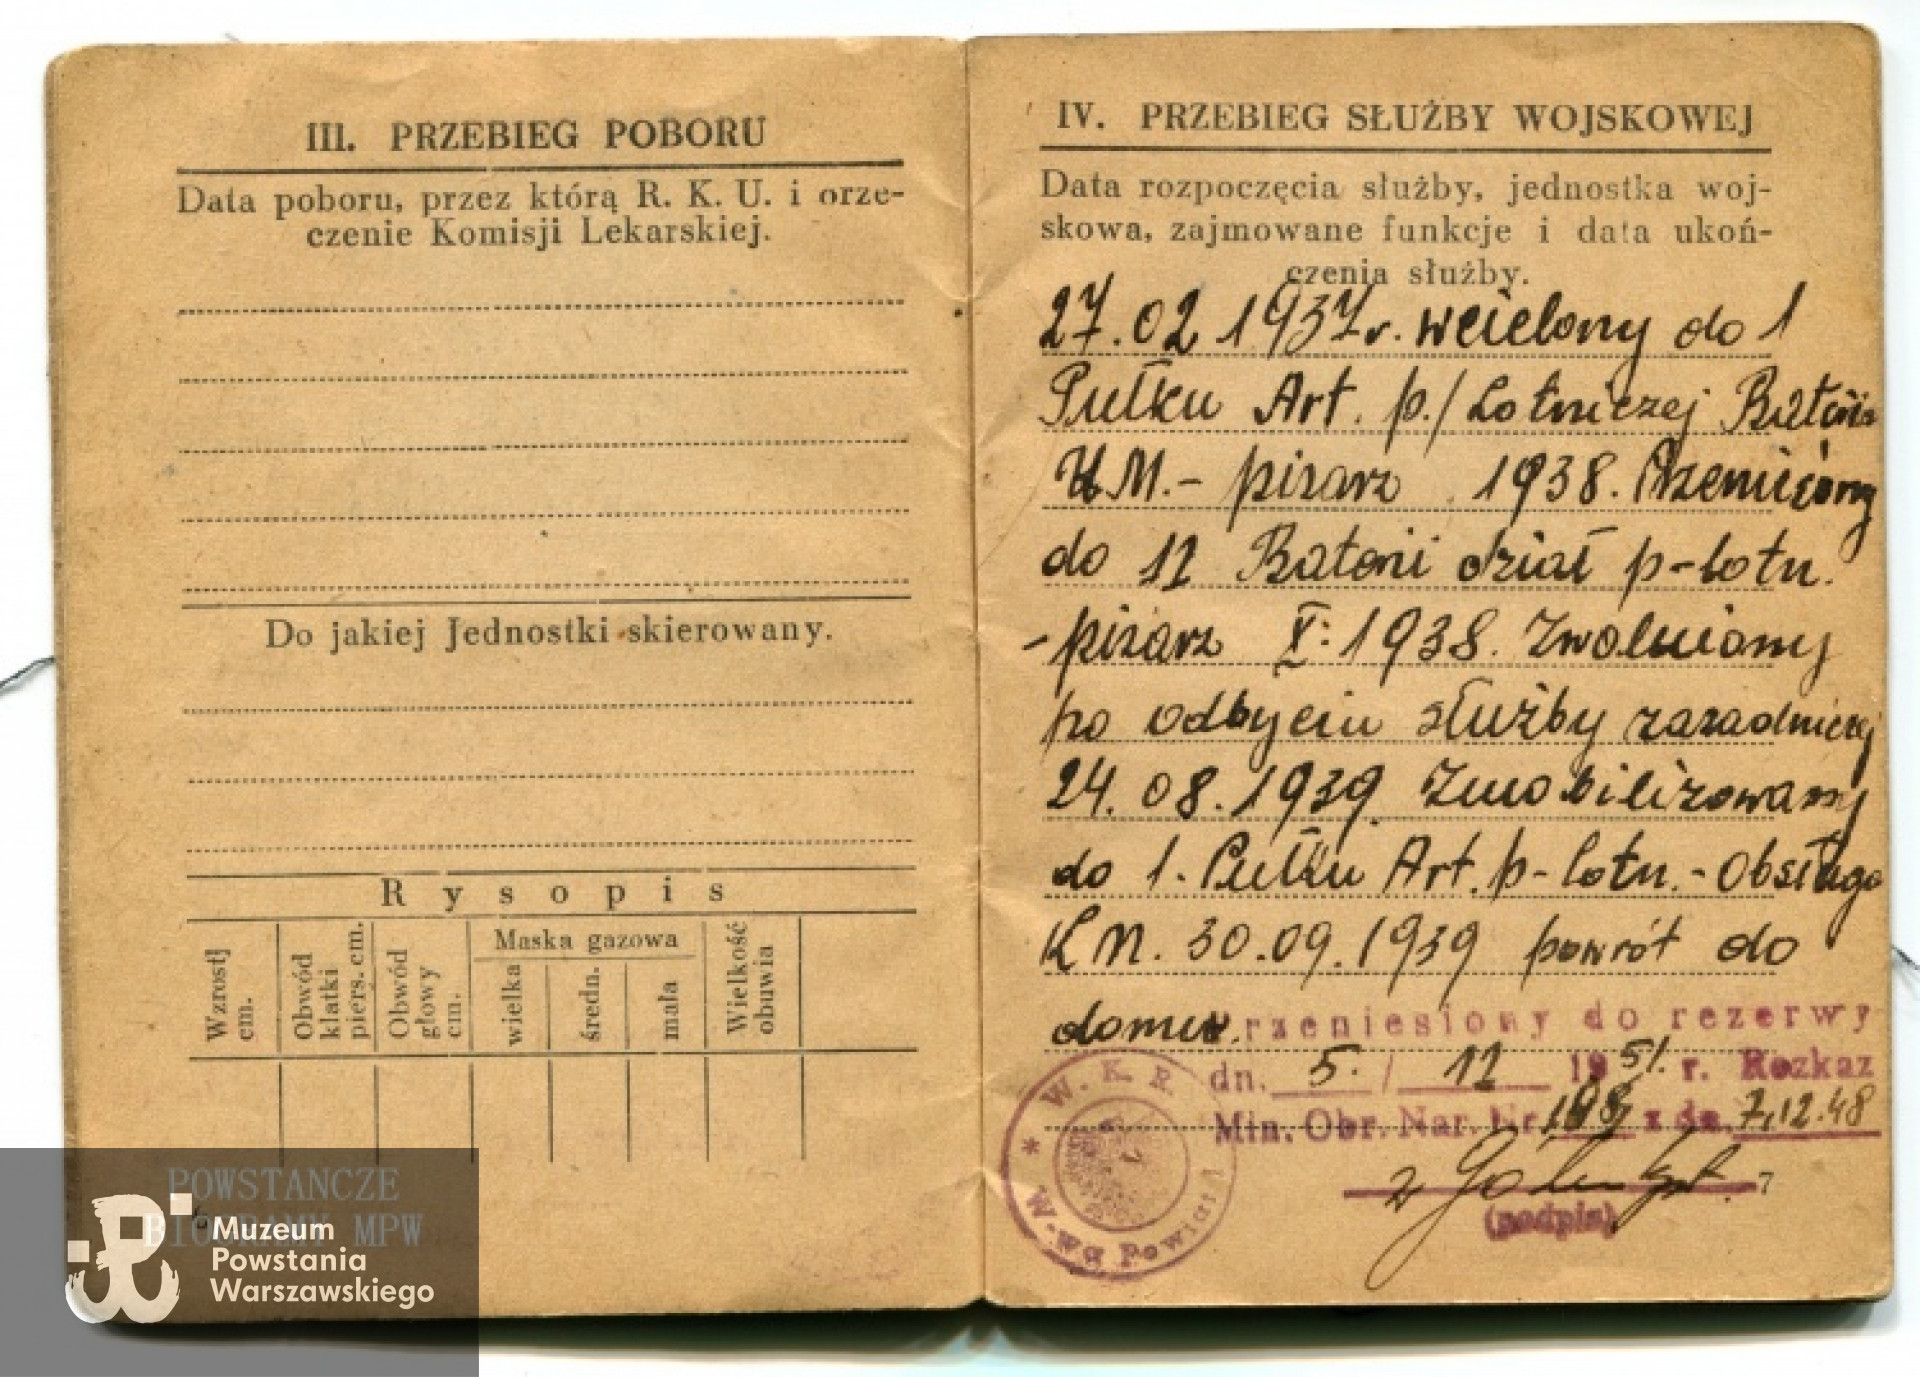 III. PRZEBIEG POBORU
Data poboru, przez którą R. K. U. i orze-
czenie Komisji Lekarskiej.
Do jakiej Jednostki skierowany.
Rysopis
Wzrost cm.
Obwód klatki piers. cm.
Obwód głowy cm.
Maska gazowa
wielka
średn.
mała
Wielkość obuwia
IV. PRZEBIEG SŁUŻBY WOJSKOWEJ
Data rozpoczęcia służby, jednostka woj-
skowa, zajmowane funkcje i data ukoń-
czenia służby.
27.02 1937 r. wcielony do 1
Pułku Art. p./Lotniczej
- pisarz 1938.
do 11 Baterii dział p-lotn.
- pisarz X. 1938. Zwolniony
po odbyciu służby zasadniczej
24.08.1939 Zmobilizowany
do 1. Pułku Art. p-lotn. - Obsługa
30.09.1939 powrót do
domu. rzeniesiony do rezerwy
dn. 5. / 12 1951. r. Rozkaz
Min. Obr. Nar. Nr. z dn. 7.12.48
(podpis)
W. K. R.
W-wa Powiat
POWSTANCZE
BIOGRAMY MPW
Muzeum
Powstania
Warszawskiego